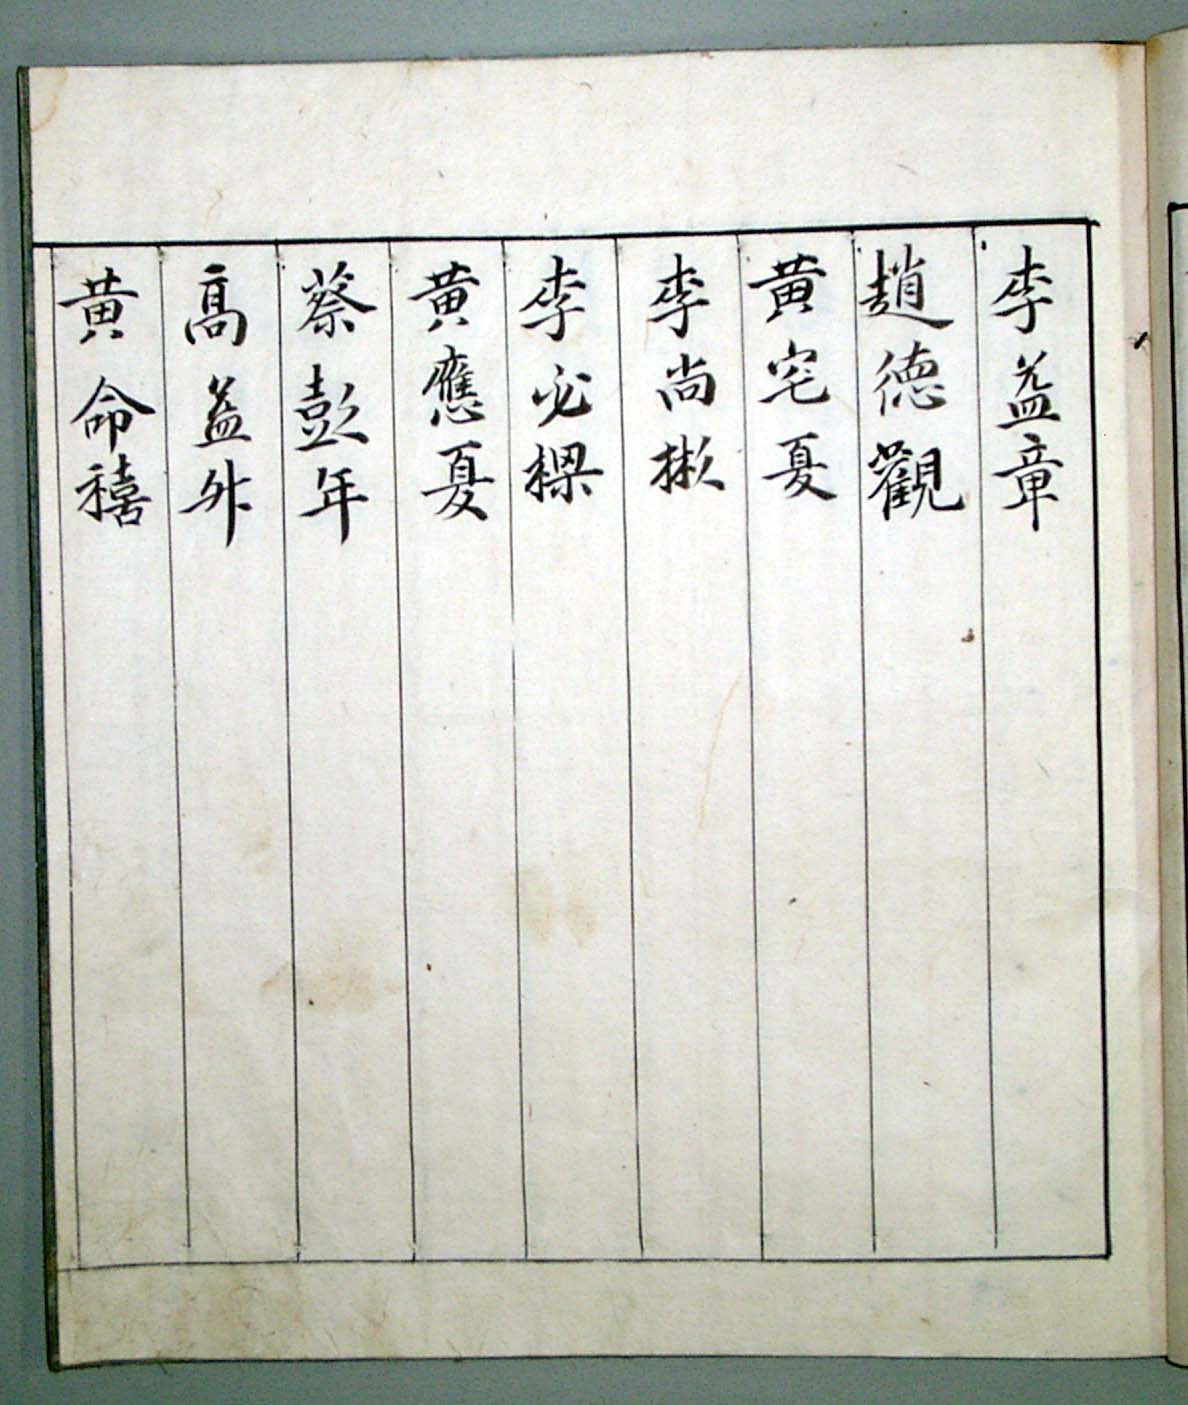 李益章
趙德觀
黃宅夏
李尚彬
李必樑
黃應夏
蔡彭年
高益外
黃命禧